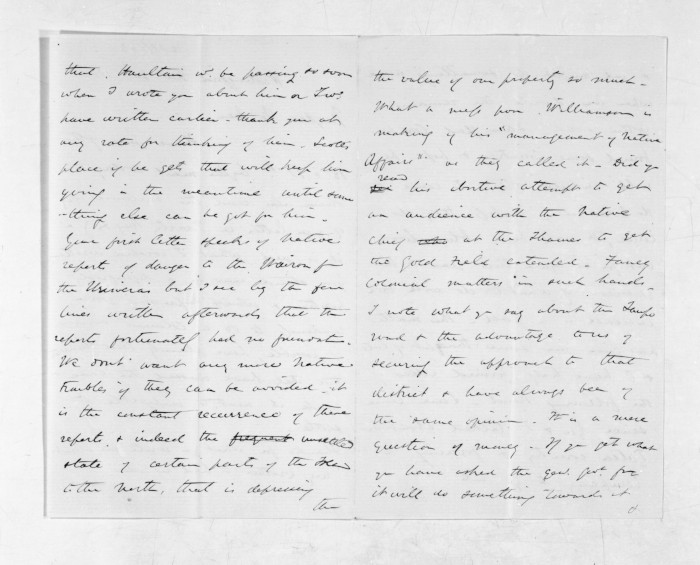 that. Haultain wd. be passing so soon
when I wrote you about him or I wd.
have written earlier - thank you at
any rate for thinking of him. Scott's
place if he gets that will keep him
going in the meantime until some
-thing else can be got for him -
Your first letter speaks of Native
reports of danger to the Wairoa fm
the Urewera's but I see by the few
lines written afterwards that the
reports fortunately had no foundatn.
We don't want any more Native
troubles if they can be avoided - it
is the constant recurrence of these
reports, & indeed the frequent unsettled
state of certain parts of the
to the North, that is depressing
the
the value of our property so much -
What a mess poor Williamson is
making of his "management of Native
Affairs" as they called it - Did you
read his abortive attempt to get
an audience with the Native
chief at the Thames to get
the Gold Field extended - Fancy
Colonial matters in such hands -
I note what you say about the Taupo
road & the advantage of
securing the approach to that
district & have always been of
the same opinion. It is a mere
question of money - If you get what
you have asked the genl. govt for
it will do something towards it